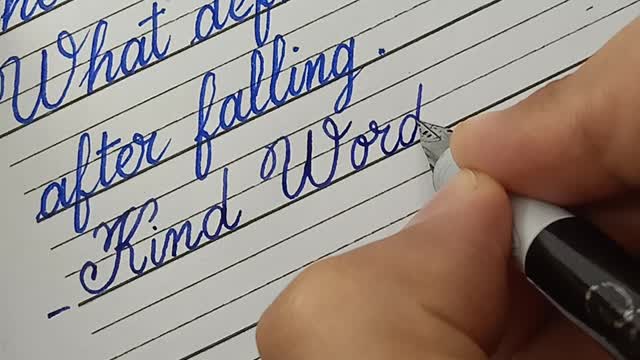 What def
after falling.
- Kind Word